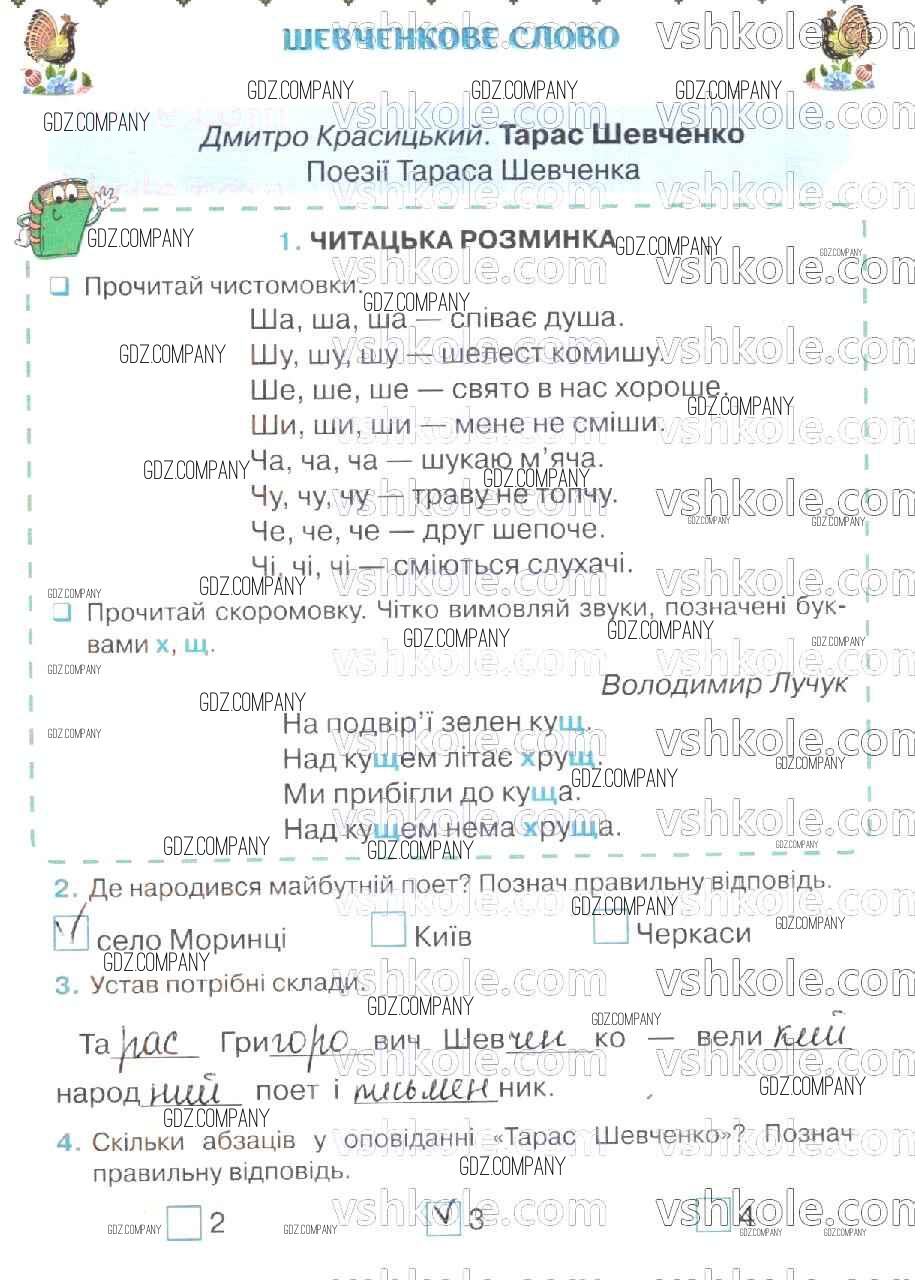 ШЕВЧЕНКОВЕ СЛОВО
Дмитро Красицький. Тарас Шевченко
Поезії Тараса Шевченка
1. ЧИТАЦЬКА РОЗМИНКА
Прочитай чистомовки.
Ша, ша, ша — співає душа.
Шу, шу, шу — шелест комишу.
Ше, ше, ше — свято в нас хороше.
Ши, ши, ши — мене не сміши.
Ча, ча, ча — шукаю м’яча.
Чу, чу, чу — траву не топчу.
Че, че, че — друг шепоче.
Чі, чі, чі — сміються слухачі.
Прочитай скоромовку. Чітко вимовляй звуки, позначені бук-
вами х, щ.
Володимир Лучук
На подвір’ї зелен кущ.
Над кущем літає хрущ.
Ми прибігли до куща.
Над кущем нема хруща.
2. Де народився майбутній поет? Познач правильну відповідь.
село Моринці Київ Черкаси
3. Устав потрібні склади.
Тарас Григорович Шевченко — великий
народний поет і письменник.
4. Скільки абзаців у оповіданні «Тарас Шевченко»? Познач
правильну відповідь.
2 3 4
vshkole.com
GDZ.COMPANY